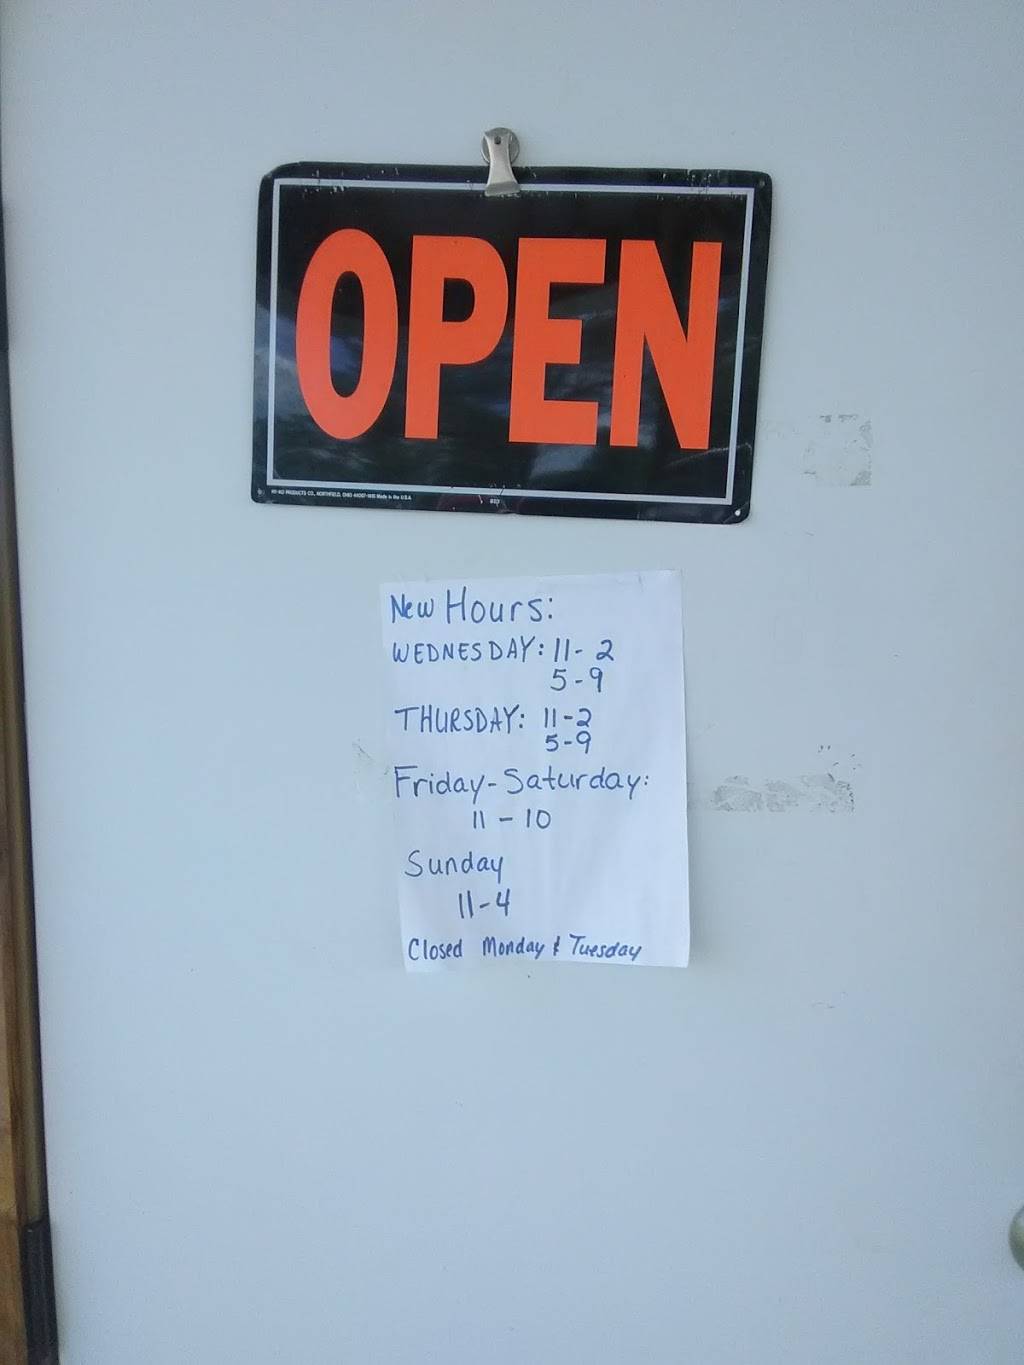 OPEN
HY-KO PRODUCTS CO., NORTHFIELD, OHIO 44067 Made in the U.S.A.
New Hours:
WEDNESDAY: 11- 2
5-9
THURSDAY: 11-2
5-9
Friday-Saturday:
11 - 10
Sunday
11-4
Closed Monday & Tuesday